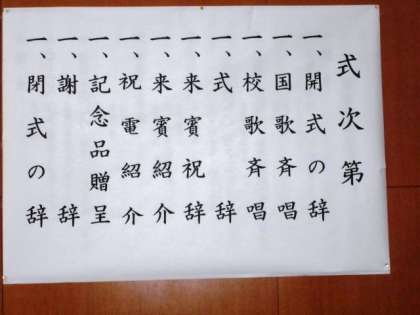 式次第
一、開式の辞
一、国歌斉唱
一、校歌斉唱
一、式辞
一、来賓祝辞
一、来賓紹介
一、祝電紹介
一、記念品贈呈
一、謝辞
一、閉式の辞